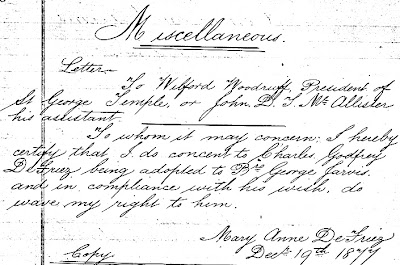 Miscellaneous.
Letter
To Wilford Woodruff, President of
St George Temple, or John D. T. McAllister
his assistant.
To whom it may concern; I hereby
certify that I do concent to Charles Godfrey
DeFriez being adopted to Bro George Jarvis.
and in compliance with his wish, do
wave my right to him.
Mary Anne DeFriez
Dect 19th 1877
Copy.